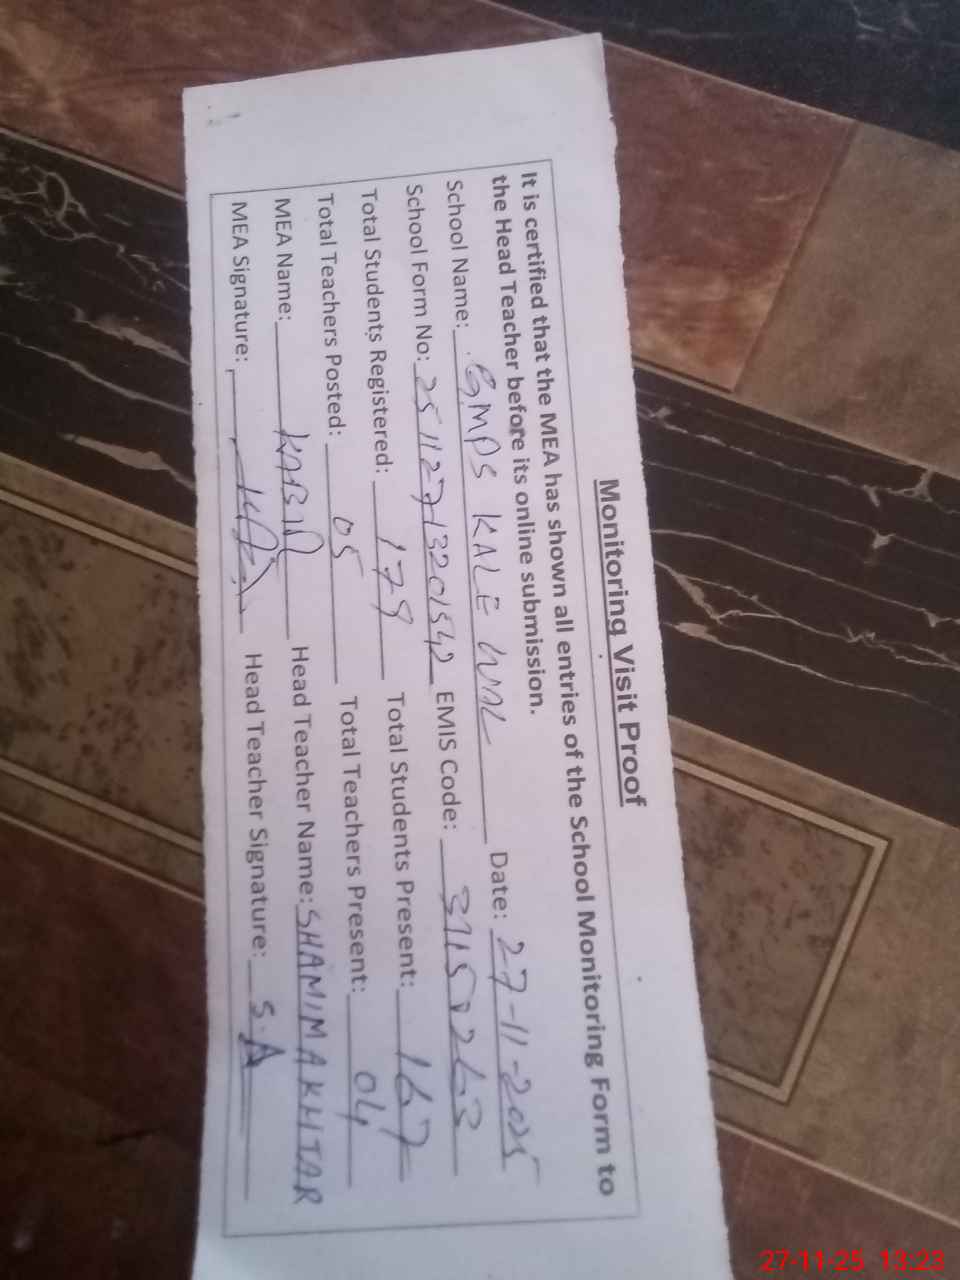 Monitoring Visit Proof
It is certified that the MEA has shown all entries of the School Monitoring Form to
the Head Teacher before its online submission.
School Name: GMPS KALE WAL Date: 27-11-2025
School Form No: 25112713201542 EMIS Code: 37150263
Total Students Registered: 179 Total Students Present: 167
Total Teachers Posted: 05 Total Teachers Present: 04
MEA Name: KABIR Head Teacher Name: SHAMIM AKHTAR
MEA Signature: Head Teacher Signature: S.A
27-11-25 13:23